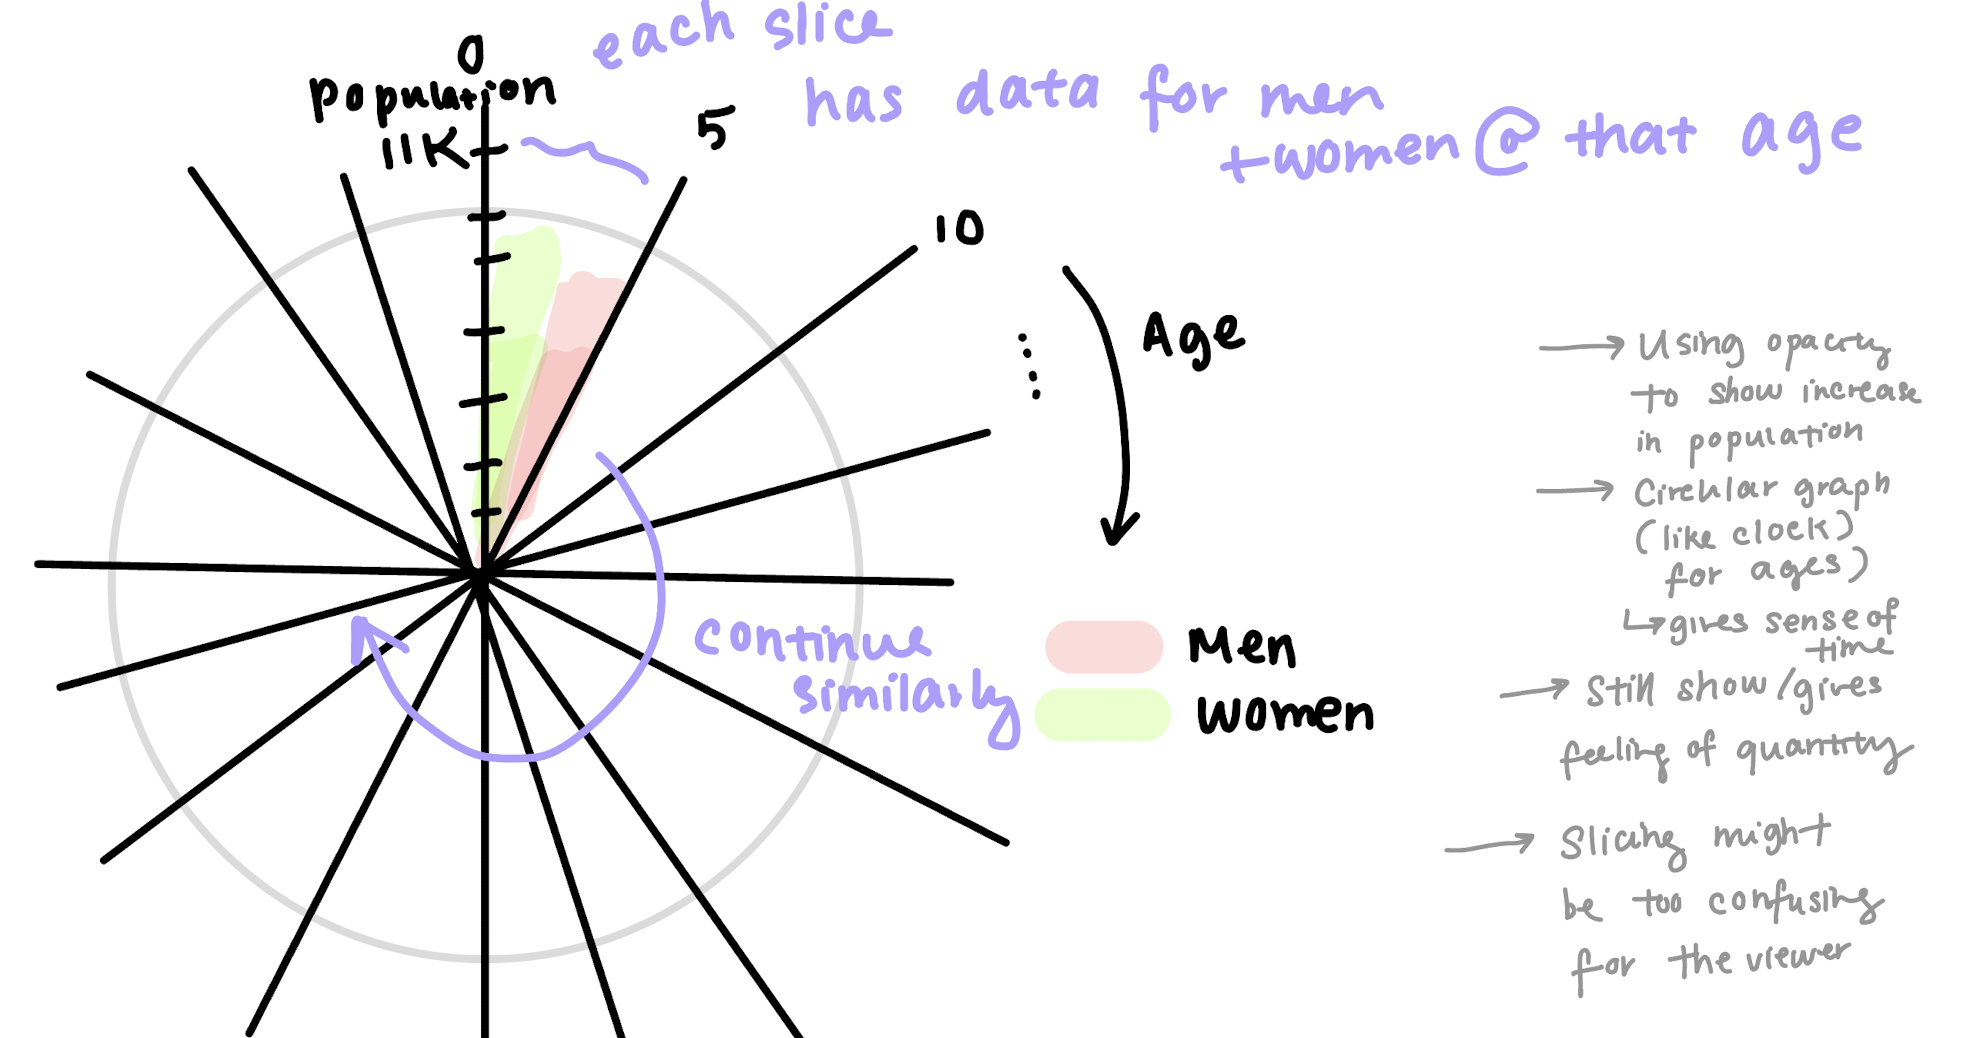 each slice
has data for men
+women @ that age
0
population
11K
5
10
Age
continue
similarly
Men
women
→ Using opacity
to show increase
in population
→ Circular graph
(like clock)
for ages)
↳ gives sense of
time
→ Still show/gives
feeling of quantity
→ Slicing might
be too confusing
for the viewer